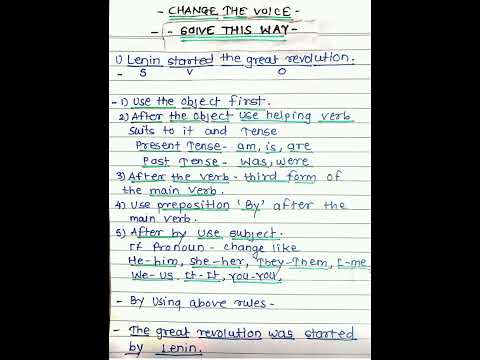 - CHANGE THE VOICE -
- SOLVE THIS WAY -
1) Lenin started the great revolution.
- S V O
- 1) Use the object first.
2) After the object use helping verb
suits to it and tense
Present Tense - am, is, are
Past Tense - was, were
3) After the verb - third form of
the main verb.
4) Use preposition 'By' after the
main verb.
5) After by use subject.
If Pronoun - change like
He-him, she-her, They-Them, I-me
We-Us It-It, You-You,
- By Using above rules -
- The great revolution was started
by Lenin.